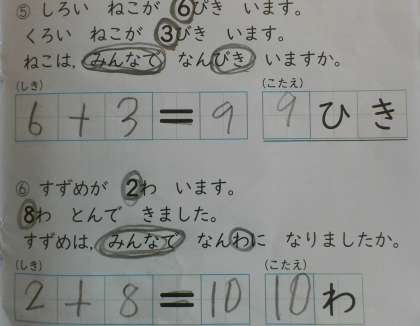 ⑤ しろい ねこが 6ぴき います。
くろい ねこが 3びき います。
ねこは, みんなで なんびき いますか。
(しき) (こたえ)
6+3=9 9ひき
⑥ すずめが 2わ います。
8わ とんで きました。
すずめは, みんなで なんわに なりましたか。
(しき) (こたえ)
2+8=10 10わ